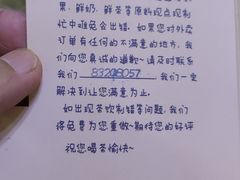 果、鲜奶、鲜茶等原料现点现制
忙中难免会出错，如果您对外卖
订单有任何的不满意的地方，我
们向您真诚的道歉~请及时联系
我们 83208057 我们一定
解决到让您满意为止。
如出现茶饮制错等问题，我们
得免费为您重做~期待您的好评
祝您喝茶愉快~